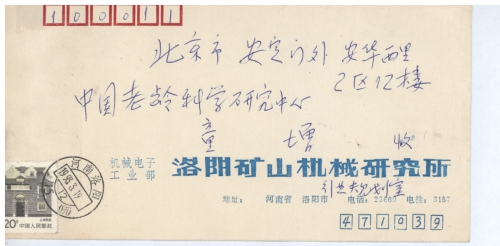 100011
北京市 安定门外 安华西里
2区12楼
中国老龄科学研究中心
童 增 收
机械电子
工业部
洛阳矿山机械研究所
地址: 河南省 洛阳市 电话: 22662 电挂: 3157
471039
河南洛阳
20分
中国人民邮政